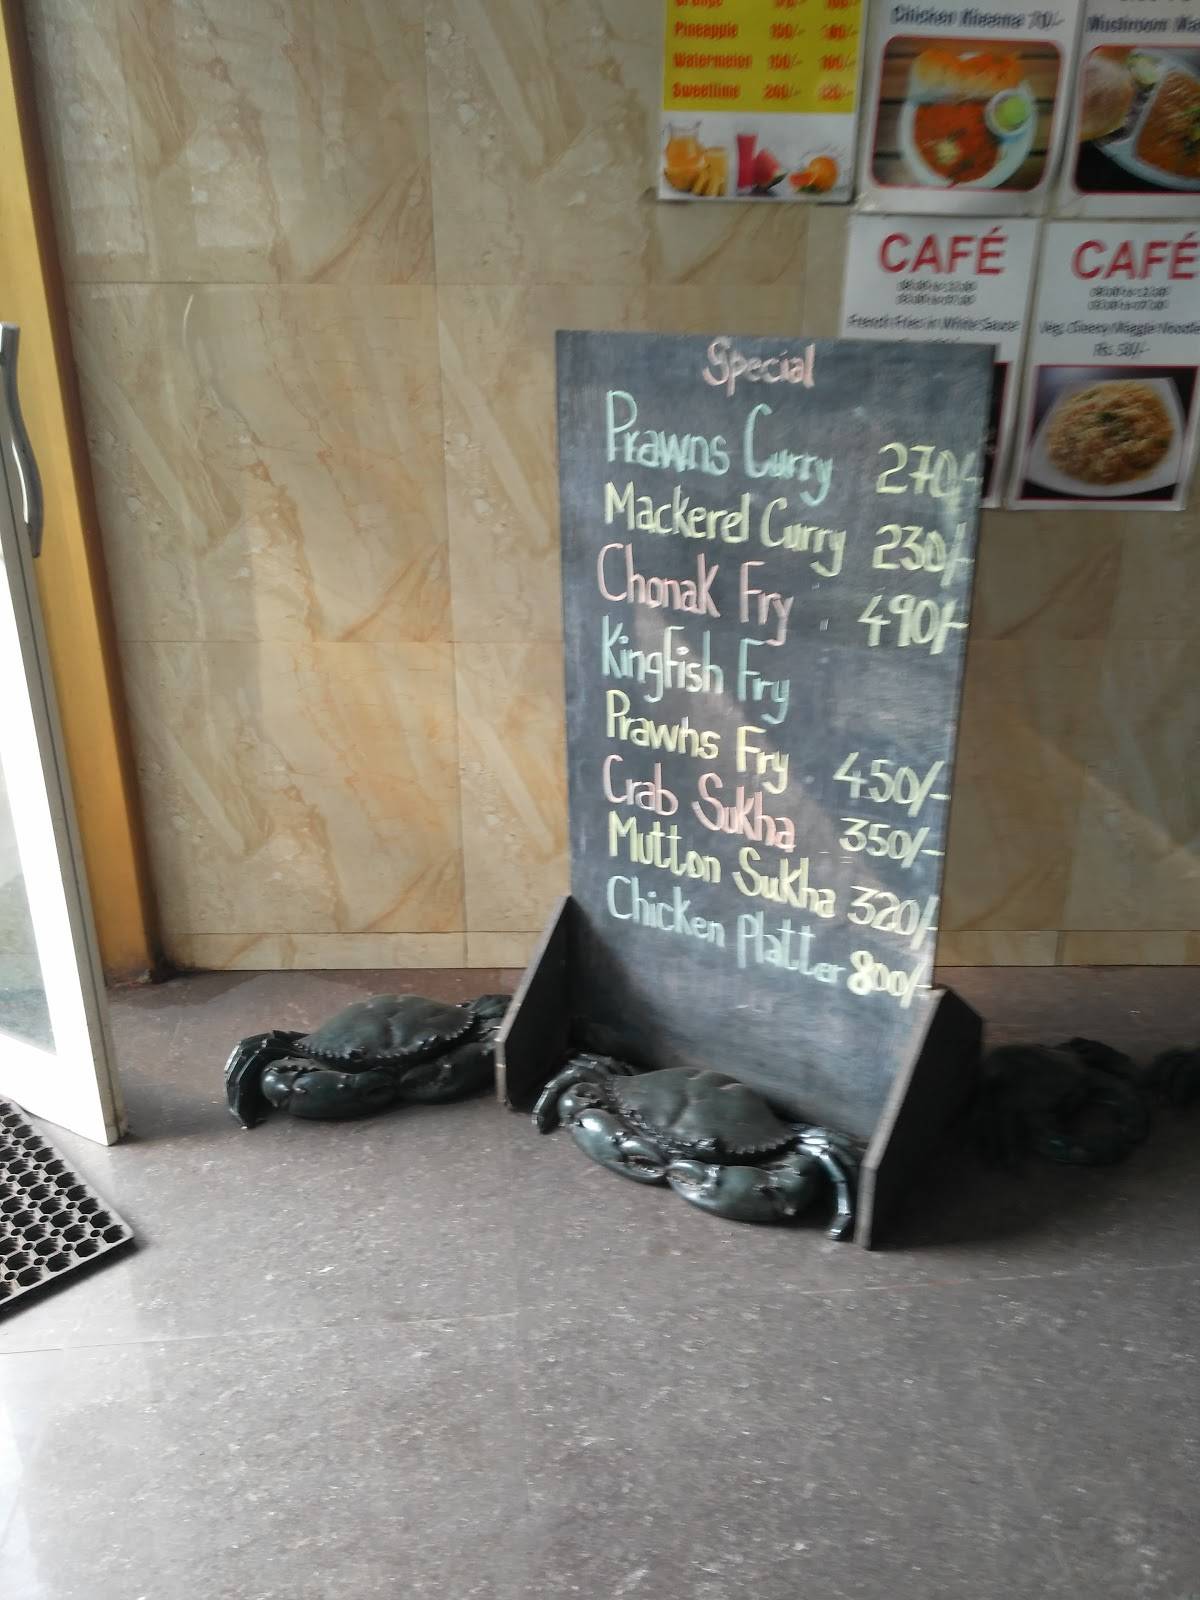 Pineapple 150/-
Watermelon 150/-
Sweetlime
Chicken Kheema 70/-
Mushroom
CAFÉ
French Fries in White Sauce
CAFÉ
Veg. Cheesy Maggie Noodle
Rs 50/-
Special
Prawns Curry 270/-
Mackerel Curry 230/-
Chonak Fry 490/-
Kingfish Fry
Prawns Fry 450/-
Crab Sukha 350/-
Mutton Sukha 320/-
Chicken Platter 800/-